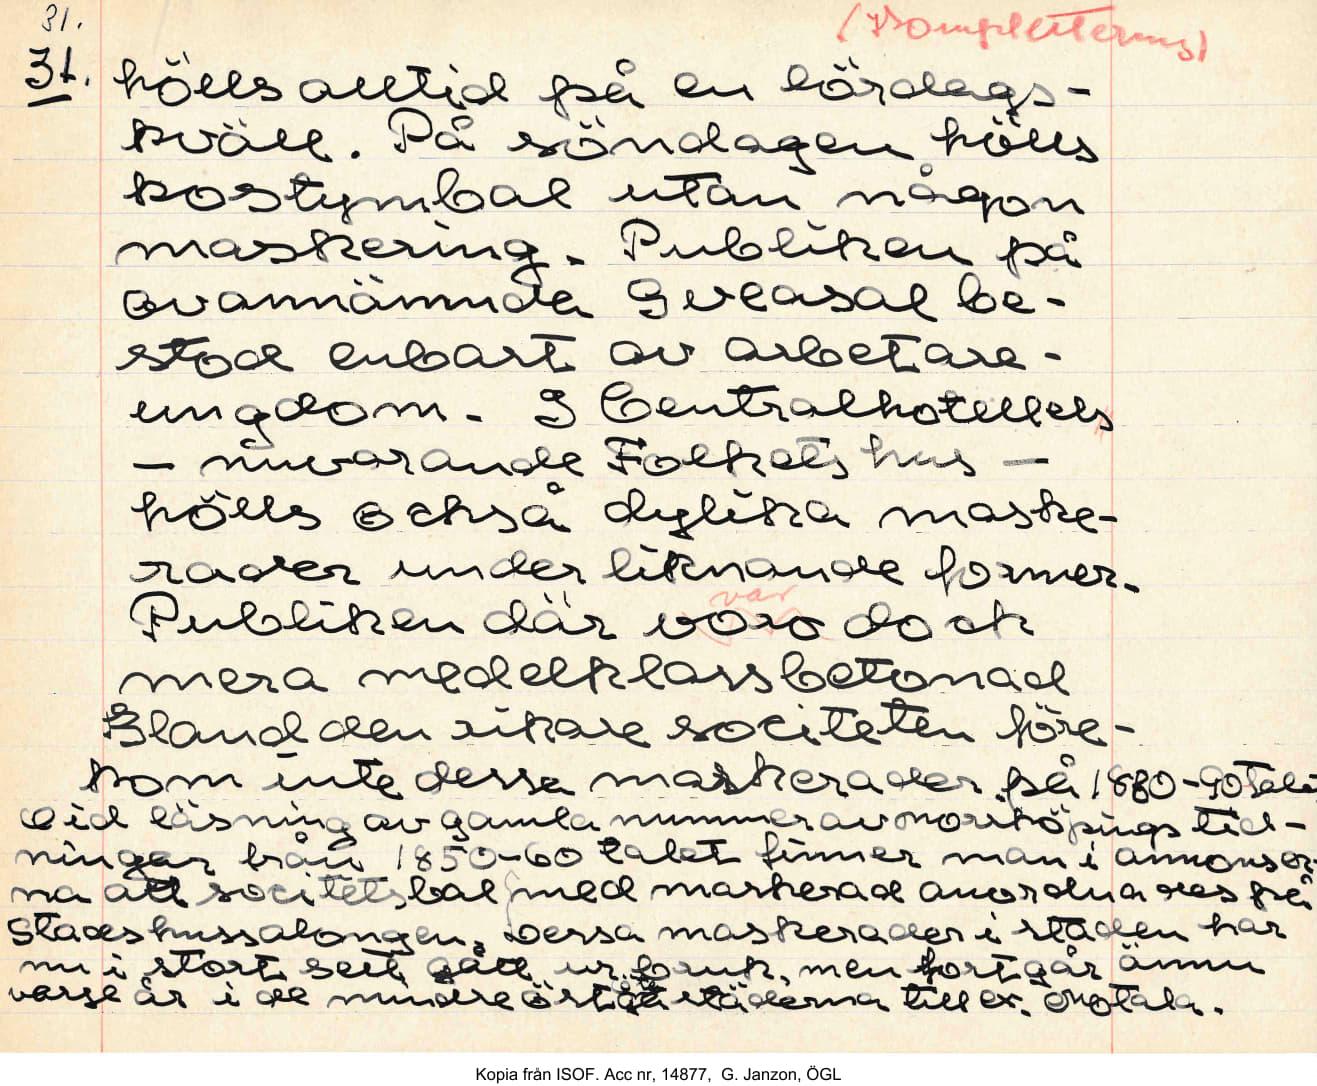 31.
(Komplettering)
31. hölls alltid på en lördags-
kväll. På söndagen hölls
kostymbal utan någon
maskering. Publiken på
ovannämnda Svea sal be-
stod enbart av arbetare-
ungdom. I Centralhotellets
— nuvarande Folkets hus —
hölls också dylika maske-
rader under liknande former.
var
Publiken där voro dock
mera medelklassbetonad
Bland den rikare societeten före-
kom inte dessa maskerader på 1880-90 talet
vid läsning av gamla nummer av Norrköpings tid-
ningar från 1850-60 talet finner man i annonser-
na att societetsbal med maskerad anordnades på
Stadshussalongen. Dessa maskerader i staden har
nu i stort sett gått ur bruk, men fortgår ännu
varje år i de mindre städerna till ex. Motala.
Kopia från ISOF. Acc nr, 14877, G. Janzon, ÖGL